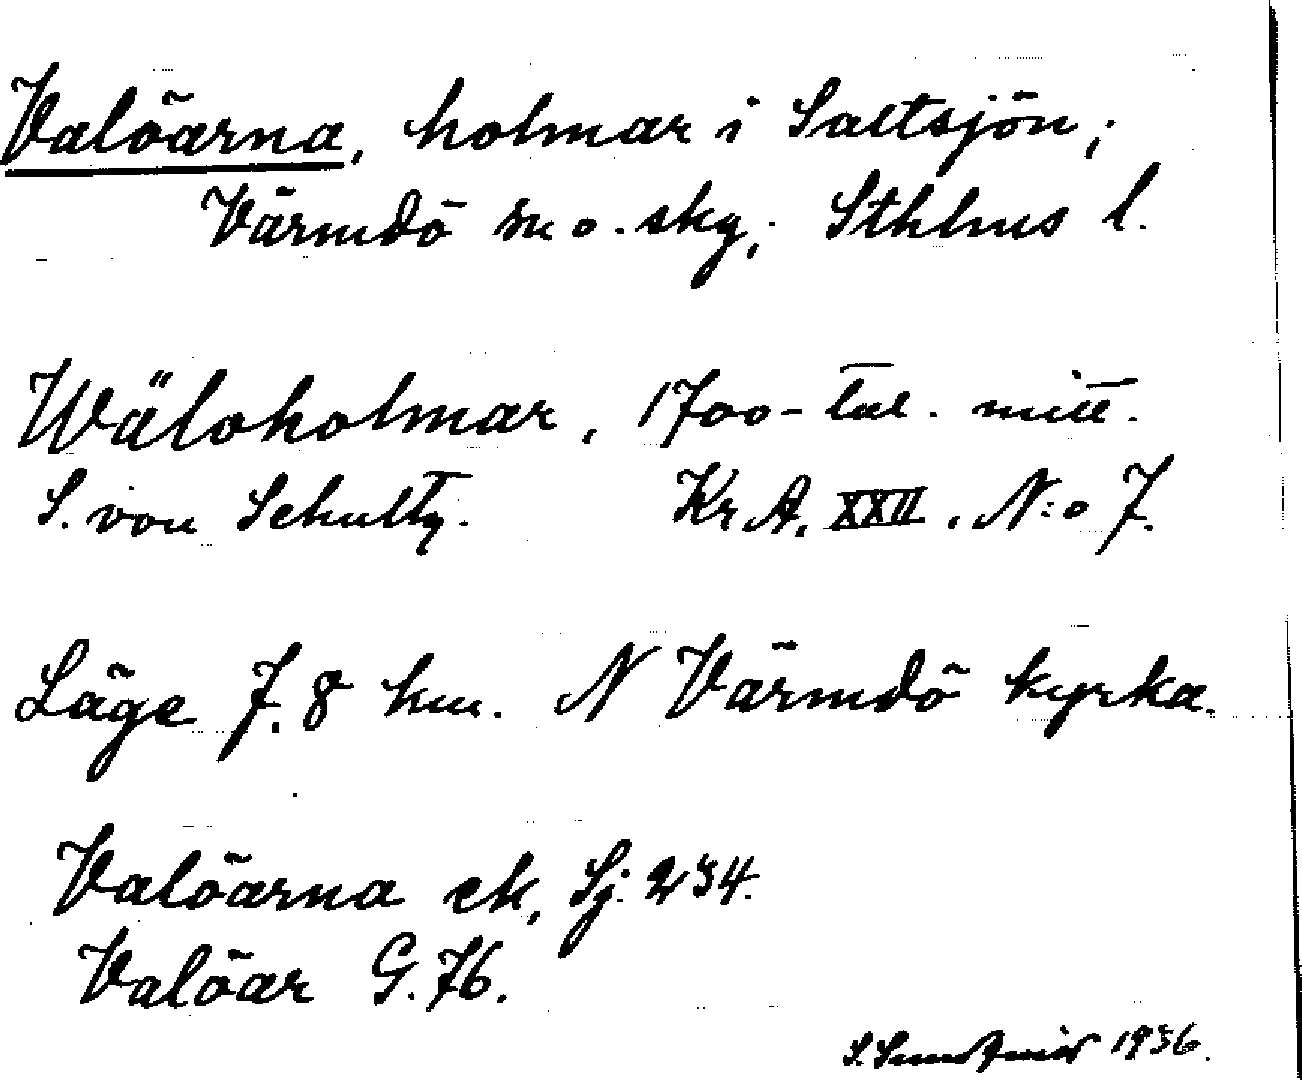 Valöarna, holmar i Saltsjön;
Värmdö sn o. skg; Sthlms l.
Wäloholmar, 1700-tal. mitt.
S. von Schultz. Kr. A. XXII. N:o 7.
Läge 7.8 km. N Värmdö kyrka.
Valöarna ek, Sj. 234.
Valöar G. 76.
1936.